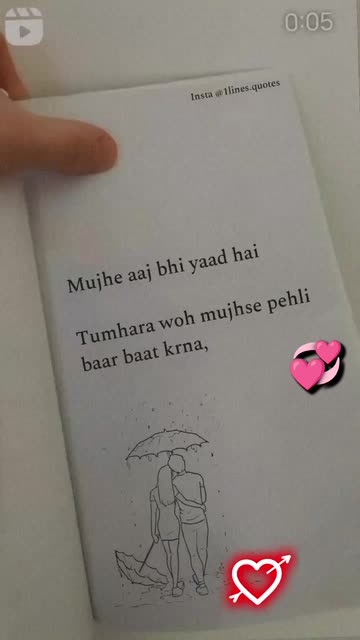 0:05
Insta @1lines.quotes
Mujhe aaj bhi yaad hai
Tumhara woh mujhse pehli
baar baat krna,